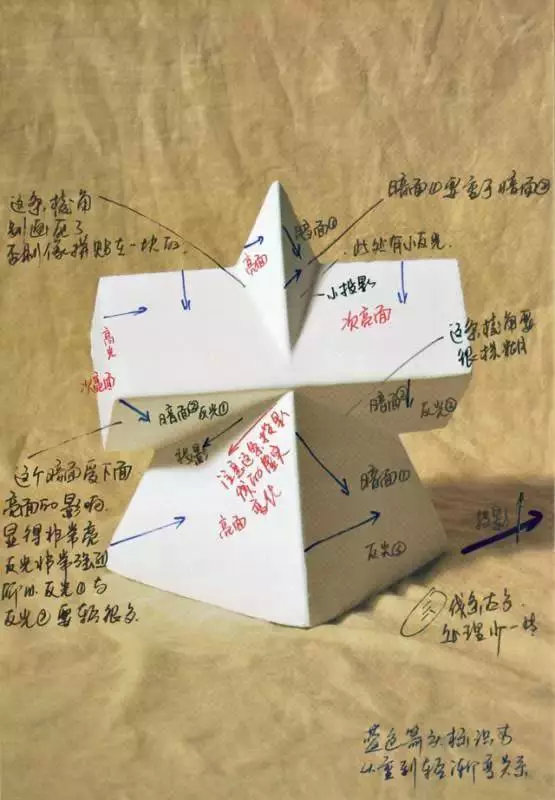 这条棱角
别画死了
否则像拼贴在一块的
暗面①要重于暗面②
此处有小反光.
暗面②
亮面
小投影
次亮面
这条棱角要
很模糊
高光
次亮面
暗面②反光①
投影
注意这条投影
线的
变化
亮面
暗面②
反光②
暗面①
反光②
投影
这个暗面受下面
亮面的影响
显得非常亮
反光非常强烈
所以反光①与
反光②要轻很多
线条
处理
蓝色箭头标识为
从重到轻渐变关系